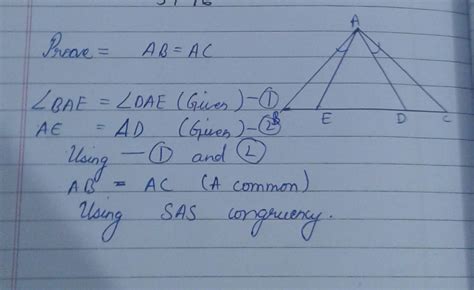 Proove = AB = AC
∠BAE = ∠DAE (Given) - ①
AE = AD (Given) - ②
Using - ① and ②
AB = AC (A common)
Using SAS congruency.
A
B
E
D
C